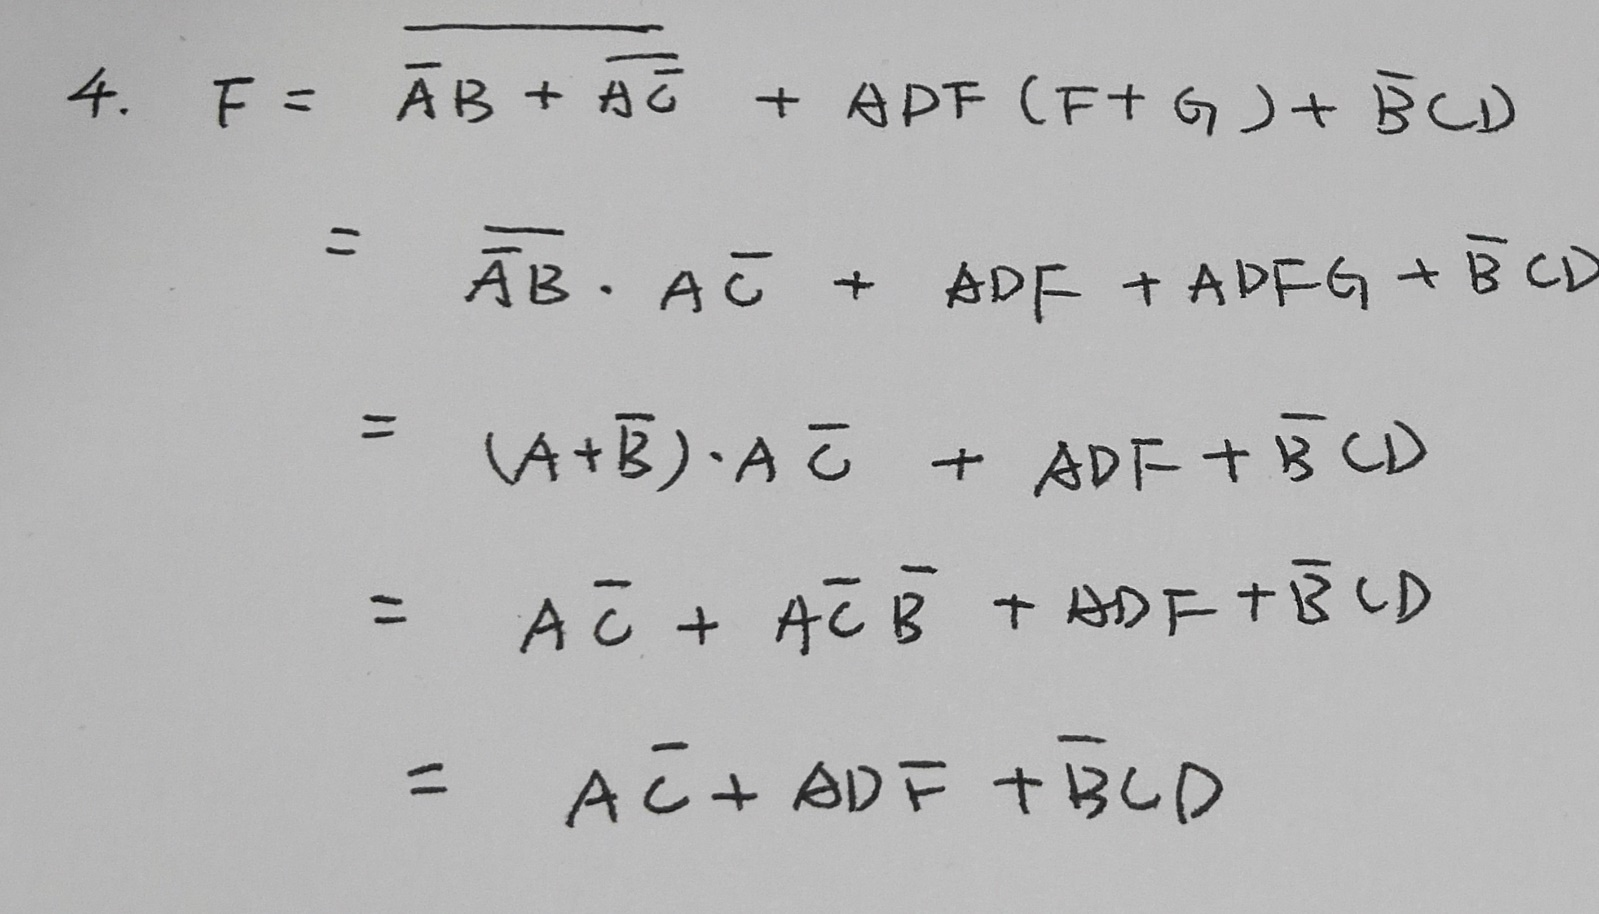 4. F = \overline{\overline{A}B + \overline{A\overline{C}}} + ADF (F + G) + \overline{B}CD
= \overline{\overline{A}B} · A\overline{C} + ADF + ADFG + \overline{B}CD
= (A+\overline{B})·A\overline{C} + ADF + \overline{B}CD
= A\overline{C} + A\overline{C}\overline{B} + ADF + \overline{B}CD
= A\overline{C} + ADF + \overline{B}CD